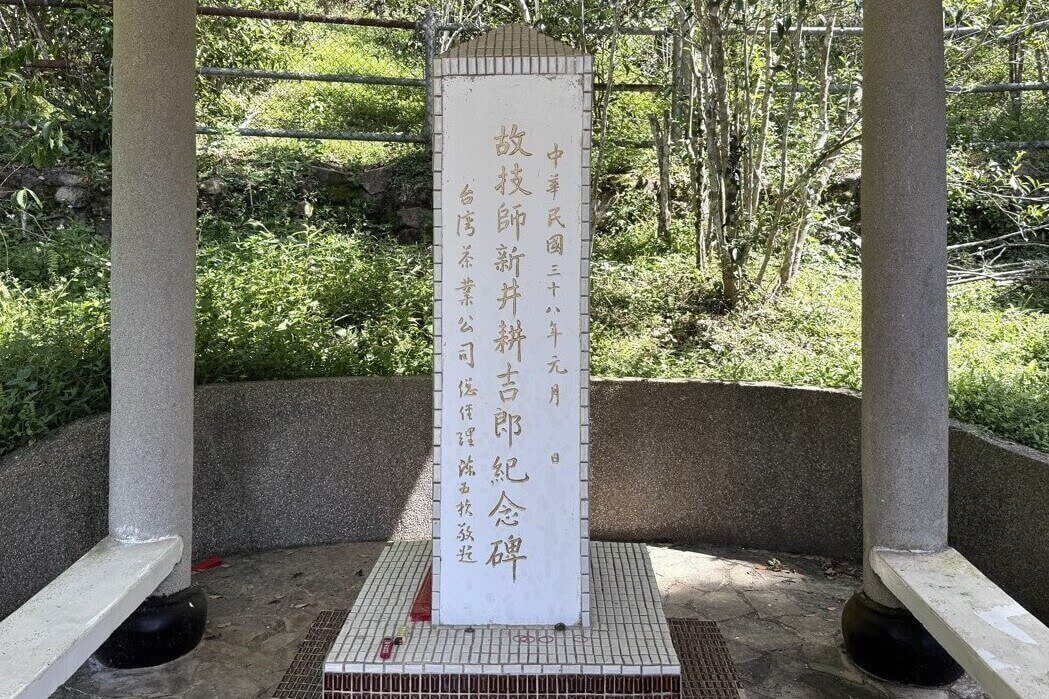 中華民國三十八年元月 日
故技師新井耕吉郎紀念碑
台湾茶業公司總經理陳五損敬題